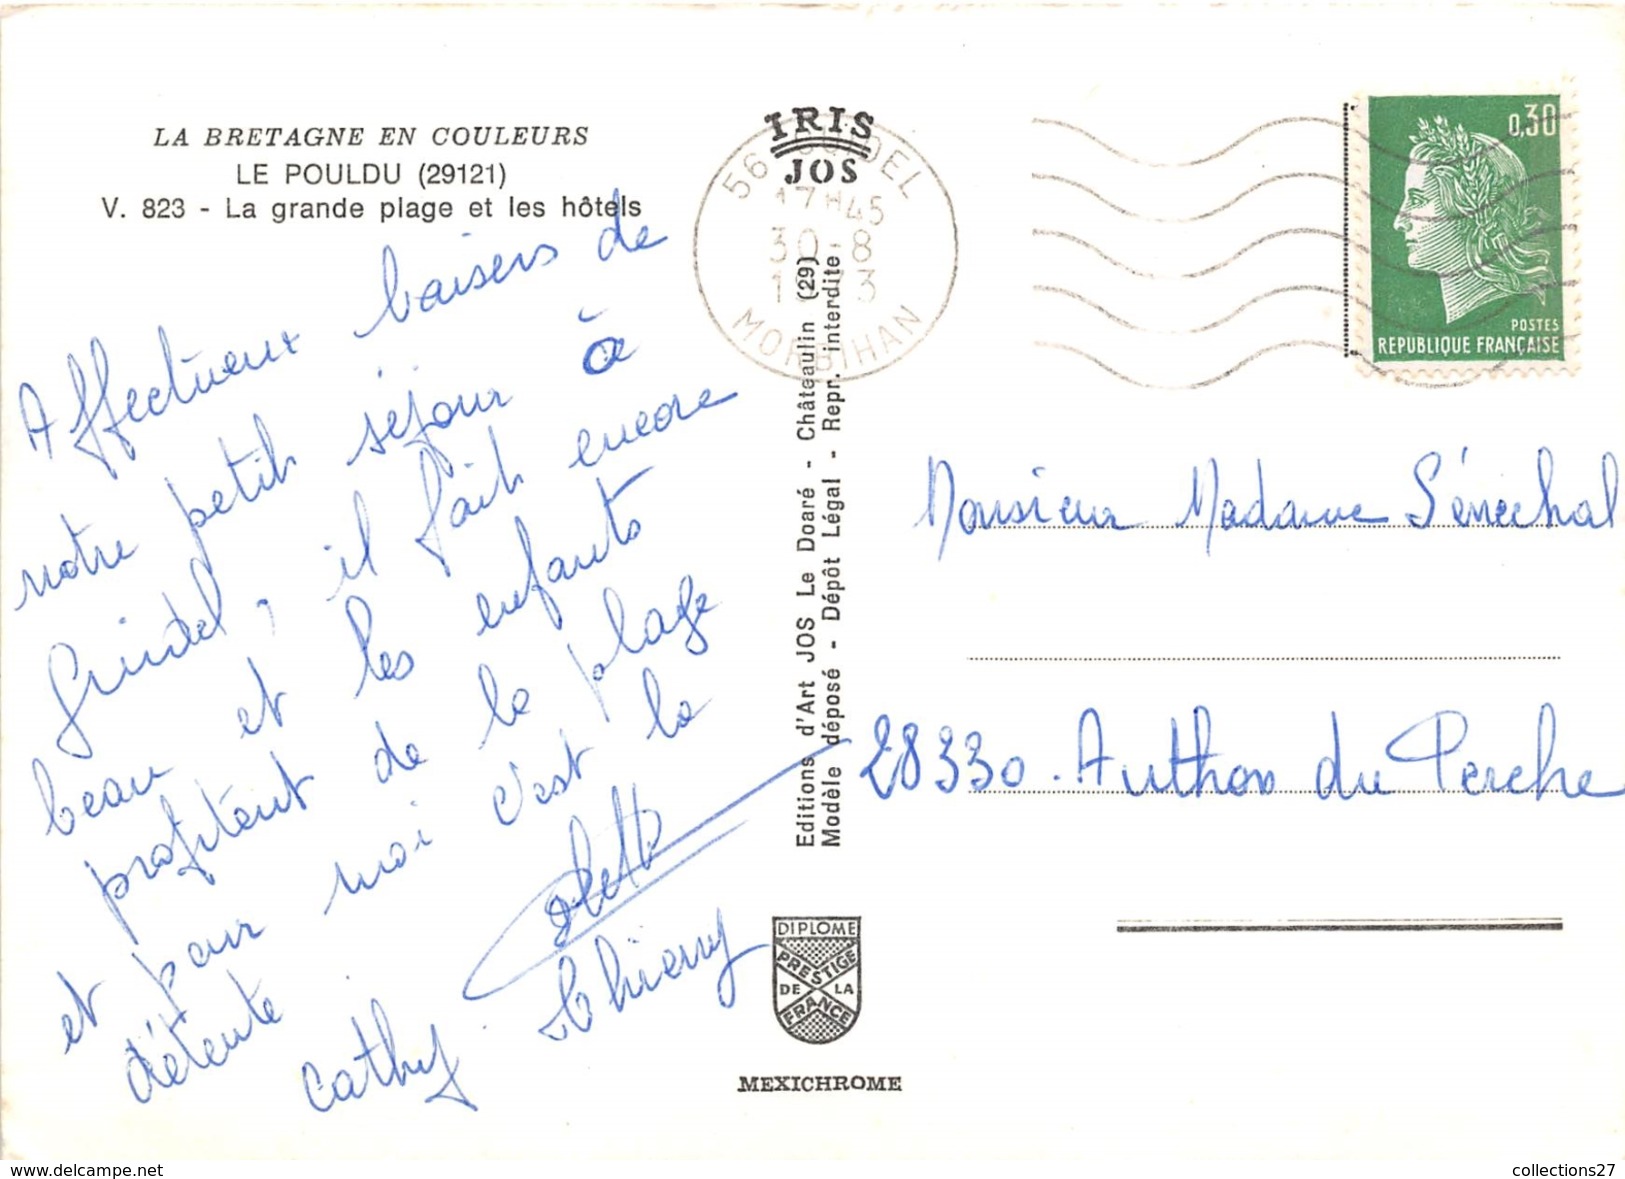 LA BRETAGNE EN COULEURS
LE POULDU (29121)
V. 823 - La grande plage et les hôtels
Affectueux baisers de
notre petit séjour à
Guidel, il fait encore
beau et les enfants
profitent de la plage
et pour moi c'est la
détente
Colette
Cathy Thierry
IRIS
JOS
56 GUIDEL
17H45
30-8
1973
MORBIHAN
Editions d'Art JOS Le Doaré - Châteaulin (29)
Modèle déposé - Dépôt Légal - Repr. interdite
DIPLOME
PRESTIGE
DE LA
FRANCE
MEXICHROME
0,30
POSTES
REPUBLIQUE FRANÇAISE
Monsieur Madame Sénéchal
28330. Authon du Perche
www.delcampe.net
collections27